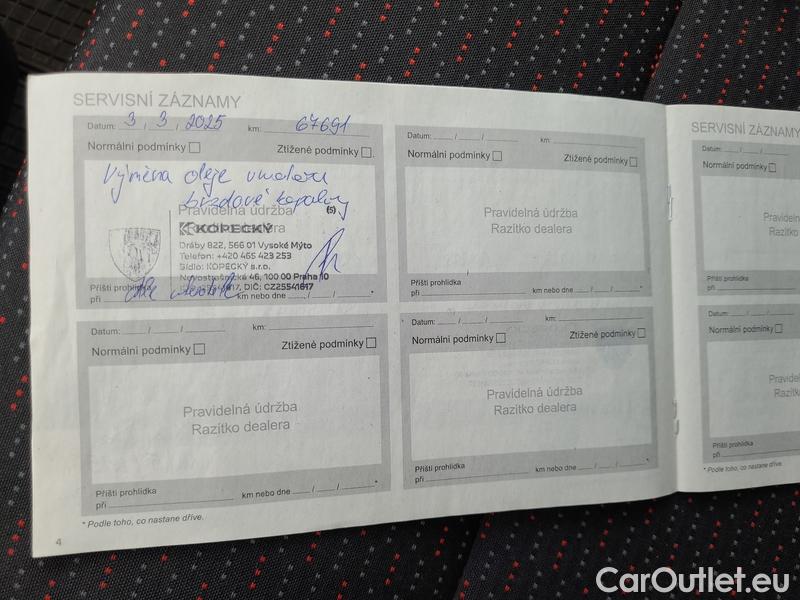 SERVISNÍ ZÁZNAMY
Datum: 3 / 3 / 2025 km: 67691
Normální podmínky Ztížené podmínky
Výměna oleje
brzdové kapaliny
Pravidelná údržba (5)
Razítko dealera
KOPECKÝ
Dráby 822, 566 01 Vysoké Mýto
Telefon: +420 465 423 253
Sídlo: KOPECKÝ s.r.o.
46, 100 00 Praha 10
DIČ: CZ25541617
Příští prohlídka
při km nebo dne / / *
Datum: / / km:
Normální podmínky Ztížené podmínky
Pravidelná údržba
Razítko dealera
Příští prohlídka
při km nebo dne / / *
Datum: / / km:
Normální podmínky Ztížené podmínky
Pravidelná údržba
Razítko dealera
Příští prohlídka
při km nebo dne / / *
Datum: / / km:
Normální podmínky Ztížené podmínky
Pravidelná údržba
Razítko dealera
Příští prohlídka
při km nebo dne / / *
* Podle toho, co nastane dříve.
4
SERVISNÍ ZÁZNAMY
Datum: / /
Normální podmínky
Příští prohlídka
při
Datum: / /
Normální podmínky
Příští prohlídka
při
* Podle toho, co nastane dříve.
CarOutlet.eu